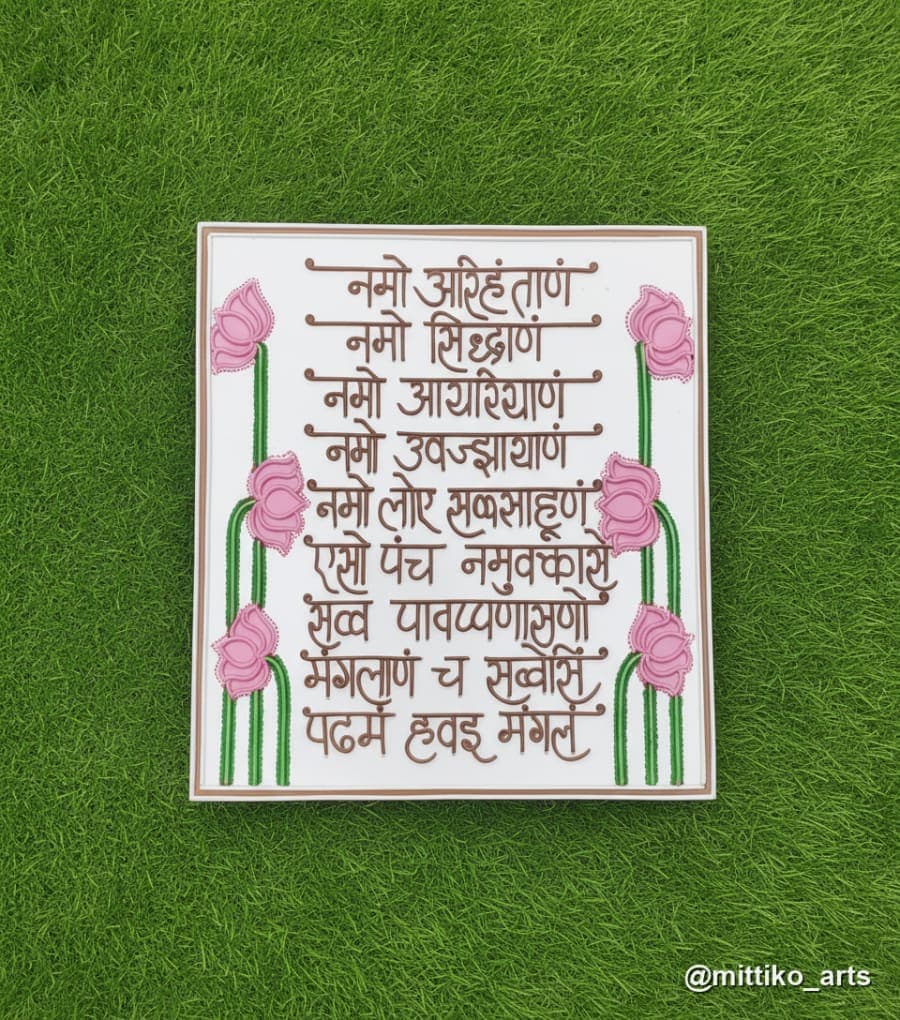 नमो अरिहंताणं
नमो सिद्धाणं
नमो आयरियाणं
नमो उवज्झायाणं
नमो लोए सव्वसाहूणं
एसो पंच नमुक्कारो
सव्व पावप्पणासणो
मंगलाणं च सव्वेसिं
पढमं हवइ मंगलं
@mittiko_arts